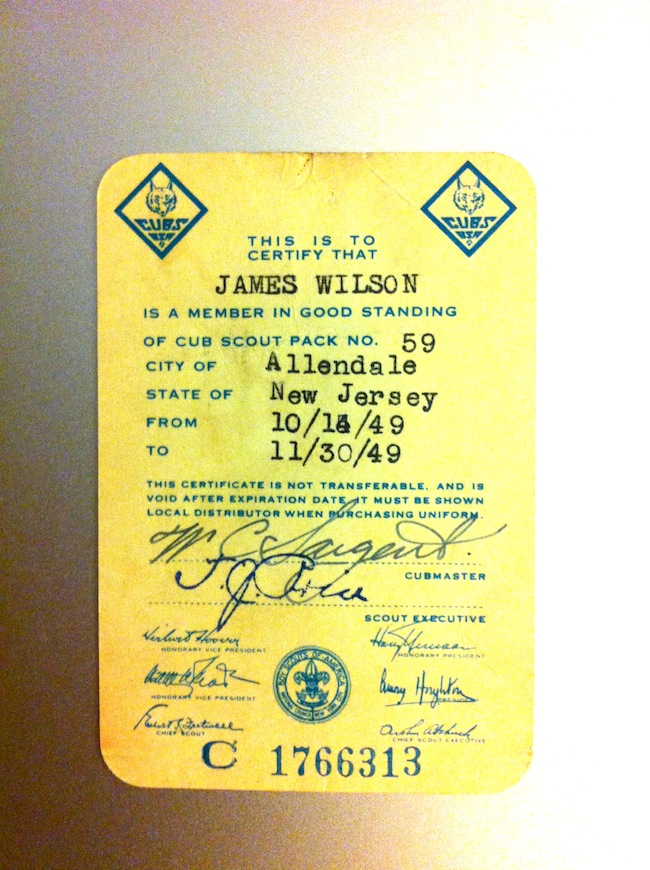 CUBS
BSA
CUBS
BSA
THIS IS TO
CERTIFY THAT
JAMES WILSON
IS A MEMBER IN GOOD STANDING
OF CUB SCOUT PACK NO. 59
CITY OF Allendale
STATE OF New Jersey
FROM 10/14/49
TO 11/30/49
THIS CERTIFICATE IS NOT TRANSFERABLE, AND IS
VOID AFTER EXPIRATION DATE. IT MUST BE SHOWN
LOCAL DISTRIBUTOR WHEN PURCHASING UNIFORM.
W. C. Sargent.
CUBMASTER
F. J.
SCOUT EXECUTIVE
Herbert Hoover
HONORARY VICE PRESIDENT
Harry Truman
HONORARY PRESIDENT
HONORARY VICE PRESIDENT
Amory Houghton
PRESIDENT
CHIEF SCOUT
CHIEF SCOUT EXECUTIVE
BOY SCOUTS OF AMERICA
C 1766313